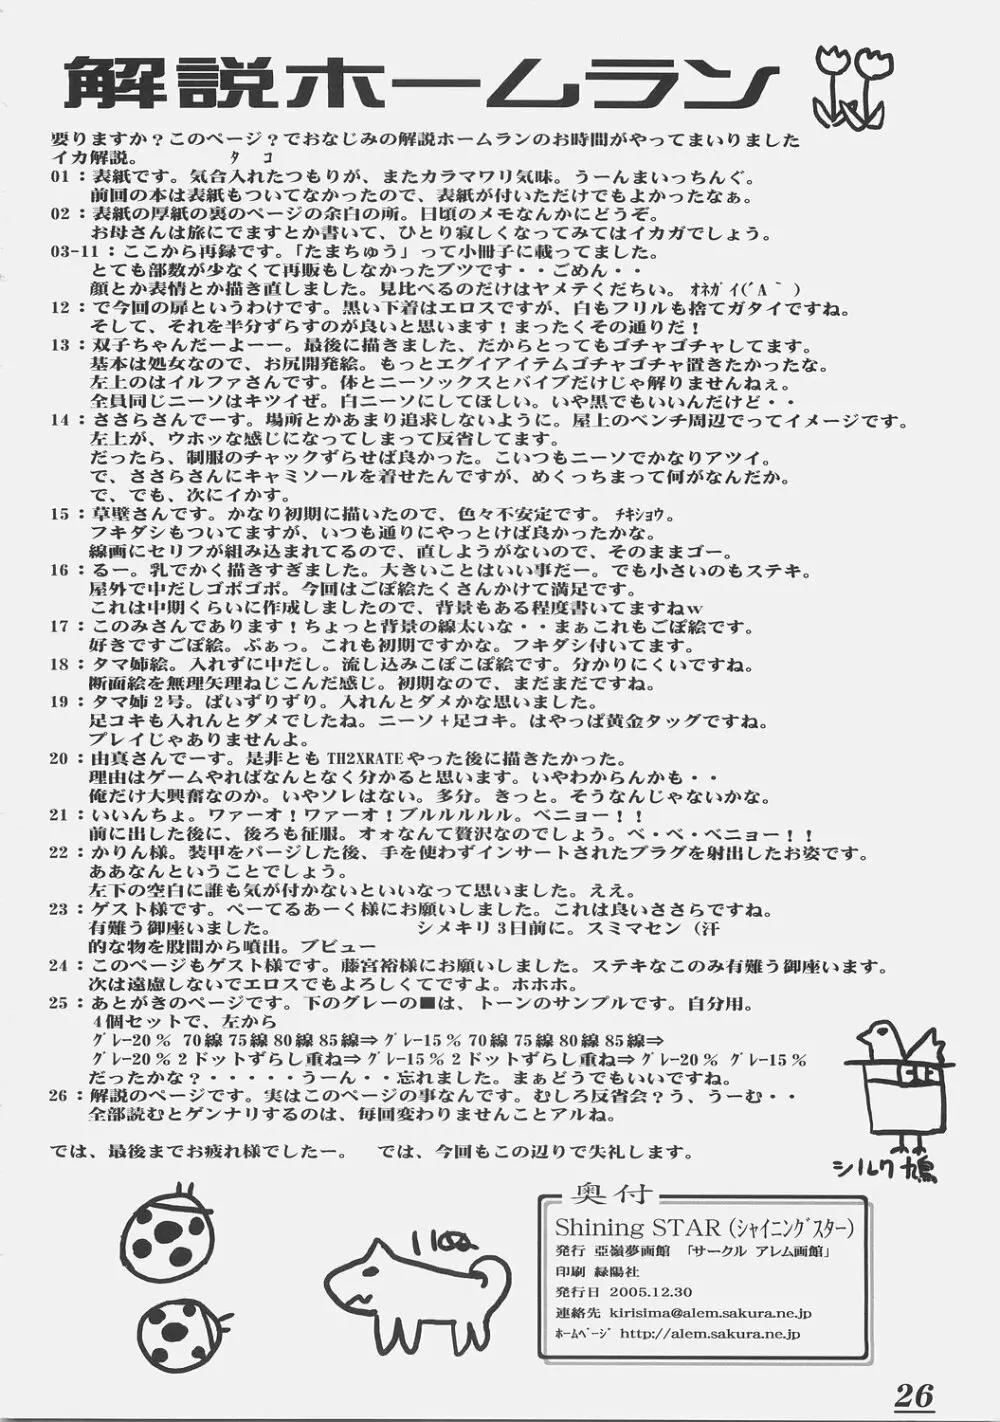 解説ホームラン
要りますか？このページ？でおなじみの解説ホームランのお時間がやってまいりました
イカ解説。　　　　　ﾀ　ｺ
01：表紙です。気合入れたつもりが、またカラマワリ気味。うーんまいっちんぐ。
前回の本は表紙もついてなかったので、表紙が付いただけでもよかったなぁ。
02：表紙の厚紙の裏のページの余白の所。日頃のメモなんかにどうぞ。
お母さんは旅にでますとか書いて、ひとり寂しくなってみてはイカガでしょう。
03-11：ここから再録です。「たまちゅう」って小冊子に載ってました。
とても部数が少なくて再販もしなかったブツです・・ごめん・・
顔とか表情とか描き直しました。見比べるのだけはヤメテくだちい。ｵﾈｶﾞｲ(´A｀)
12：で今回の扉というわけです。黒い下着はエロスですが、白もフリルも捨てガタイですね。
そして、それを半分ずらすのが良いと思います！まったくその通りだ！
13：双子ちゃんだーよーー。最後に描きました、だからとってもゴチャゴチャしてます。
基本は処女なので、お尻開発絵。もっとエグイアイテムゴチャゴチャ置きたかったな。
左上のはイルファさんです。体とニーソックスとバイブだけじゃ解りませんねぇ。
全員同じニーソはキツイぜ。白ニーソにしてほしい。いや黒でもいいんだけど・・
14：ささらさんでーす。場所とかあまり追求しないように。屋上のベンチ周辺でってイメージです。
左上が、ウホッな感じになってしまって反省してます。
だったら、制服のチャックずらせば良かった。こいつもニーソでかなりアツイ。
で、ささらさんにキャミソールを着せたんですが、めくっちまって何がなんだか。
で、でも、次にイかす。
15：草壁さんです。かなり初期に描いたので、色々不安定です。ﾁｷｼｮｳ。
フキダシもついてますが、いつも通りにやっとけば良かったかな。
線画にセリフが組み込まれてるので、直しようがないので、そのままゴー。
16：るー。乳でかく描きすぎました。大きいことはいい事だー。でも小さいのもステキ。
屋外で中だしゴポゴポ。今回はごぽ絵たくさんかけて満足です。
これは中期くらいに作成しましたので、背景もある程度書いてますねｗ
17：このみさんであります！ちょっと背景の線太いな・・まぁこれもごぽ絵です。
好きですごぽ絵。ぷぁっ。これも初期ですかな。フキダシ付いてます。
18：タマ姉絵。入れずに中だし。流し込みこぽこぽ絵です。分かりにくいですね。
断面絵を無理矢理ねじこんだ感じ。初期なので、まだまだですね。
19：タマ姉２号。ぱいずりずり。入れんとダメかな思いました。
足コキも入れんとダメでしたね。ニーソ＋足コキ。はやっぱ黄金タッグですね。
プレイじゃありませんよ。
20：由真さんでーす。是非とも TH2XRATE やった後に描きたかった。
理由はゲームやればなんとなく分かると思います。いやわからんかも・・
俺だけ大興奮なのか。いやソレはない。多分。きっと。そうなんじゃないかな。
21：いいんちょ。ワァーオ！ワァーオ！ブルルルルル。ベニョー！！
前に出した後に、後ろも征服。オォなんて贅沢なのでしょう。ベ・ベ・ベニョー！！
22：かりん様。装甲をパージした後、手を使わずインサートされたプラグを射出したお姿です。
ああなんということでしょう。
左下の空白に誰も気が付かないといいなって思いました。ええ。
23：ゲスト様です。ぺーてるあーく様にお願いしました。これは良いささらですね。
有難う御座いました。　　　　　　　シメキリ３日前に。スミマセン（汗
的な物を股間から噴出。ブビュー
24：このページもゲスト様です。藤宮裕様にお願いしました。ステキなこのみ有難う御座います。
次は遠慮しないでエロスでもよろしくてですよ。ホホホ。
25：あとがきのページです。下のグレーの■は、トーンのサンプルです。自分用。
４個セットで、左から
ｸﾞﾚｰ20％ 70線75線80線85線⇒ｸﾞﾚｰ15％ 70線75線80線85線⇒
ｸﾞﾚｰ20％２ドットずらし重ね⇒ｸﾞﾚｰ15％２ドットずらし重ね⇒ｸﾞﾚｰ20％ ｸﾞﾚｰ15％
だったかな？・・・・・うーん・・忘れました。まぁどうでもいいですね。
26：解説のページです。実はこのページの事なんです。むしろ反省会？う、うーむ・・
全部読むとゲンナリするのは、毎回変わりませんことアルね。
では、最後までお疲れ様でしたー。　では、今回もこの辺りで失礼します。
シルク鳩
1105a
奥付
Shining STAR（ｼｬｲﾆﾝｸﾞｽﾀｰ）
発行 亞嶺夢画館 「サークル アレム画館」
印刷 緑陽社
発行日 2005.12.30
連絡先 kirisima@alem.sakura.ne.jp
ﾎｰﾑﾍﾟｰｼﾞ http://alem.sakura.ne.jp
26